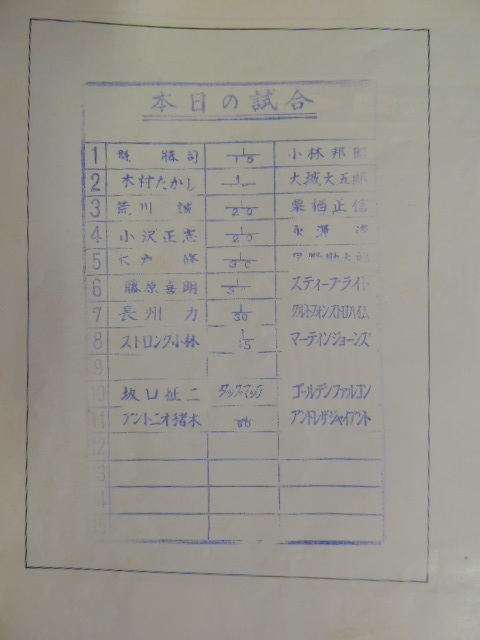 本日の試合
1 司 1/15 小林邦
2 木村たかし 1 大城大五郎
3 荒川 誠 1/20 栗栖正信
4 小沢正志 1/20 永源
5 木戸 修 1/30
6 藤原喜明 1 スティーブライト
7 長州 力 1/30
8 ストロング小林 1/15 マーティンジョーンズ
9
10 坂口征二 タッグマッチ ゴールデンファルコン
11 アントニオ猪木 アンドレザジャイアント
12
13
14
15